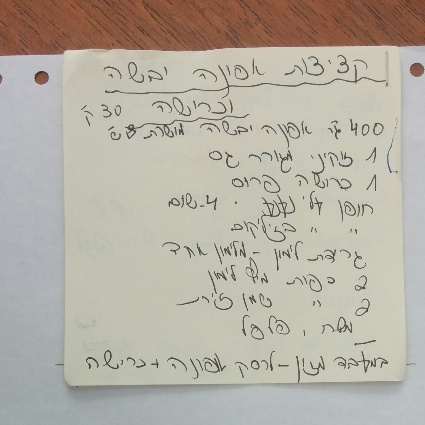 קציצות אפונה יבשה
וכרישה 30 ק'
400 גר' אפונה יבשה מושרת
1 זוקיני מגורר גס
1 כרישה פרוס
חופן עלי נענע . 4 שום
" " בזיליקום
גרעת לימון - מלימון אחד
2 כפות מיץ לימון
2 " שמן זית
מלח, פלפל
במעבד מזון - לרסק אפונה + כרישה